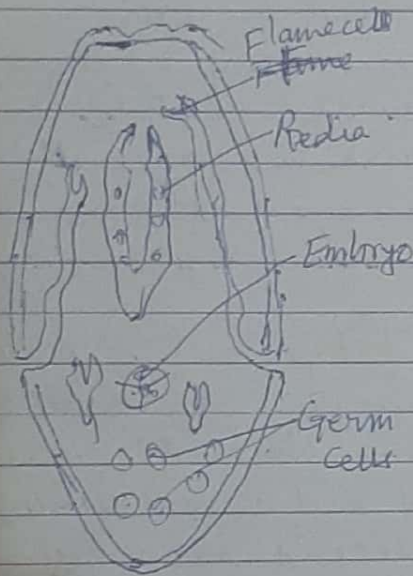 Flame cell
Flame
Redia
Embryo
Germ
Cells